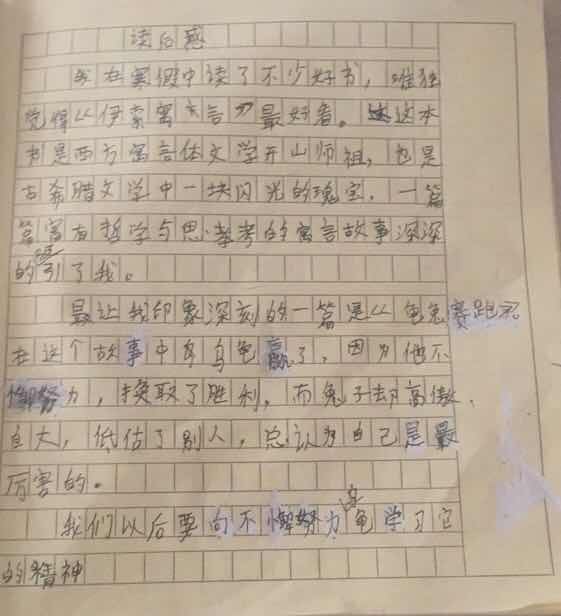 读后感
我在寒假中读了不少好书，唯独
觉得《伊索寓言》最好看。这本
书是西方寓言体文学开山师祖，也是
古希腊文学中一块闪光的瑰宝，一篇
篇富有哲学与思考的寓言故事深深
的吸引了我。
最让我印象深刻的一篇是《龟兔赛跑》
在这个故事中乌龟赢了，因为他不
懈努力，换取了胜利，而兔子却高傲、
自大，低估了别人，总认为自己是最
厉害的。
我们以后要向不懈努力乌龟学习它
的精神